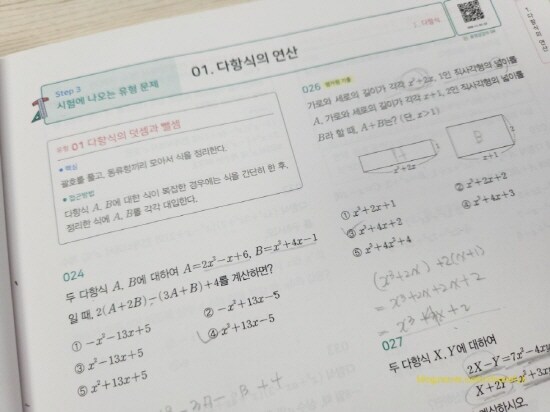 Step 3
시험에 나오는 유형 문제
01. 다항식의 연산
1. 다항식
유형 01 다항식의 덧셈과 뺄셈
괄호를 풀고, 동류항끼리 모아서 식을 정리한다.
접근방법
다항식 A, B에 대한 식이 복잡한 경우에는 식을 간단히 한 후,
정리한 식에 A, B를 각각 대입한다.
024
두 다항식 A, B에 대하여 A=2x²-x+6, B=x²+4x-1
일 때, 2(A+2B)-(3A+B)+4를 계산하면?
① -x²-13x+5
② -x²+13x-5
③ x²-13x+5
④ x²+13x-5
⑤ x²+13x+5
026
가로와 세로의 길이가 각각 x³+2x, 1인 직사각형의 넓이를
A, 가로와 세로의 길이가 각각 x+1, 2인 직사각형의 넓이를
B라 할 때, A+B는? (단, x>1)
1
x³+2x
B
2
x+1
① x³+2x+1
② x³+2x+2
③ x³+4x+2
④ x³+4x+3
⑤ x³+4x²+4
(x³+2x) + 2(x+1)
= x³+2x+2x+2
= x³+4x+2
027
두 다항식 X, Y에 대하여
2X-Y=7x²-4xy
X+2Y=x²+3x
계산하시오